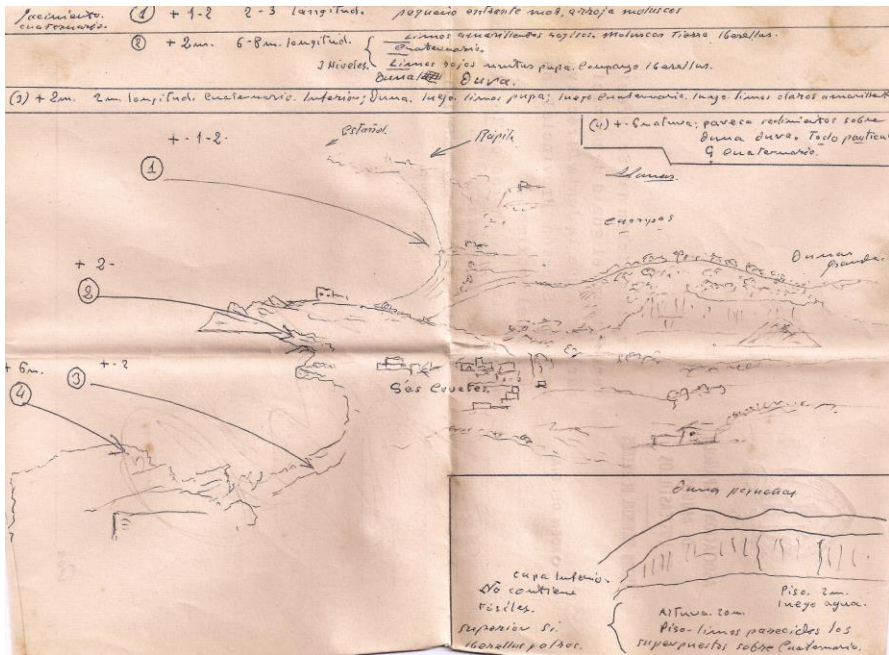 Yacimiento. ① + 1-2 2-3 longitud. pequeño entrante mar, arroja moluscos
cuaternario.
② + 2m. 6-8m. longitud. Limos amarillentos rogisos. Moluscos Tierra Iberellus.
Cuaternario.
3 Niveles. Limos rojos muntus pupa. Companyo Iberellus.
Duna Dura.
(3) + 2m. 2m. longitud. Cuaternario. Inferior; Duna. luego. limos pupa; luego Cuaternario. luego. limos claros amarillent
(4) + - 6m altura; parece sedimentos sobre
duna dura. Todo
Cuaternario.
+ - 1-2.
Estañol.
Rápita
①
Llanas.
Campos
Dunas
grandes
+ 2-
②
+ 6m.
+ -2
③
④
Ses Covetes.
Duna pequeñas
capa inferio.
No contiene
fósiles.
superior si.
Iberellus
Piso. 2m.
luego agua.
Altura. 20m.
Piso-limos parecidos los
superpuestos sobre Cuaternario.